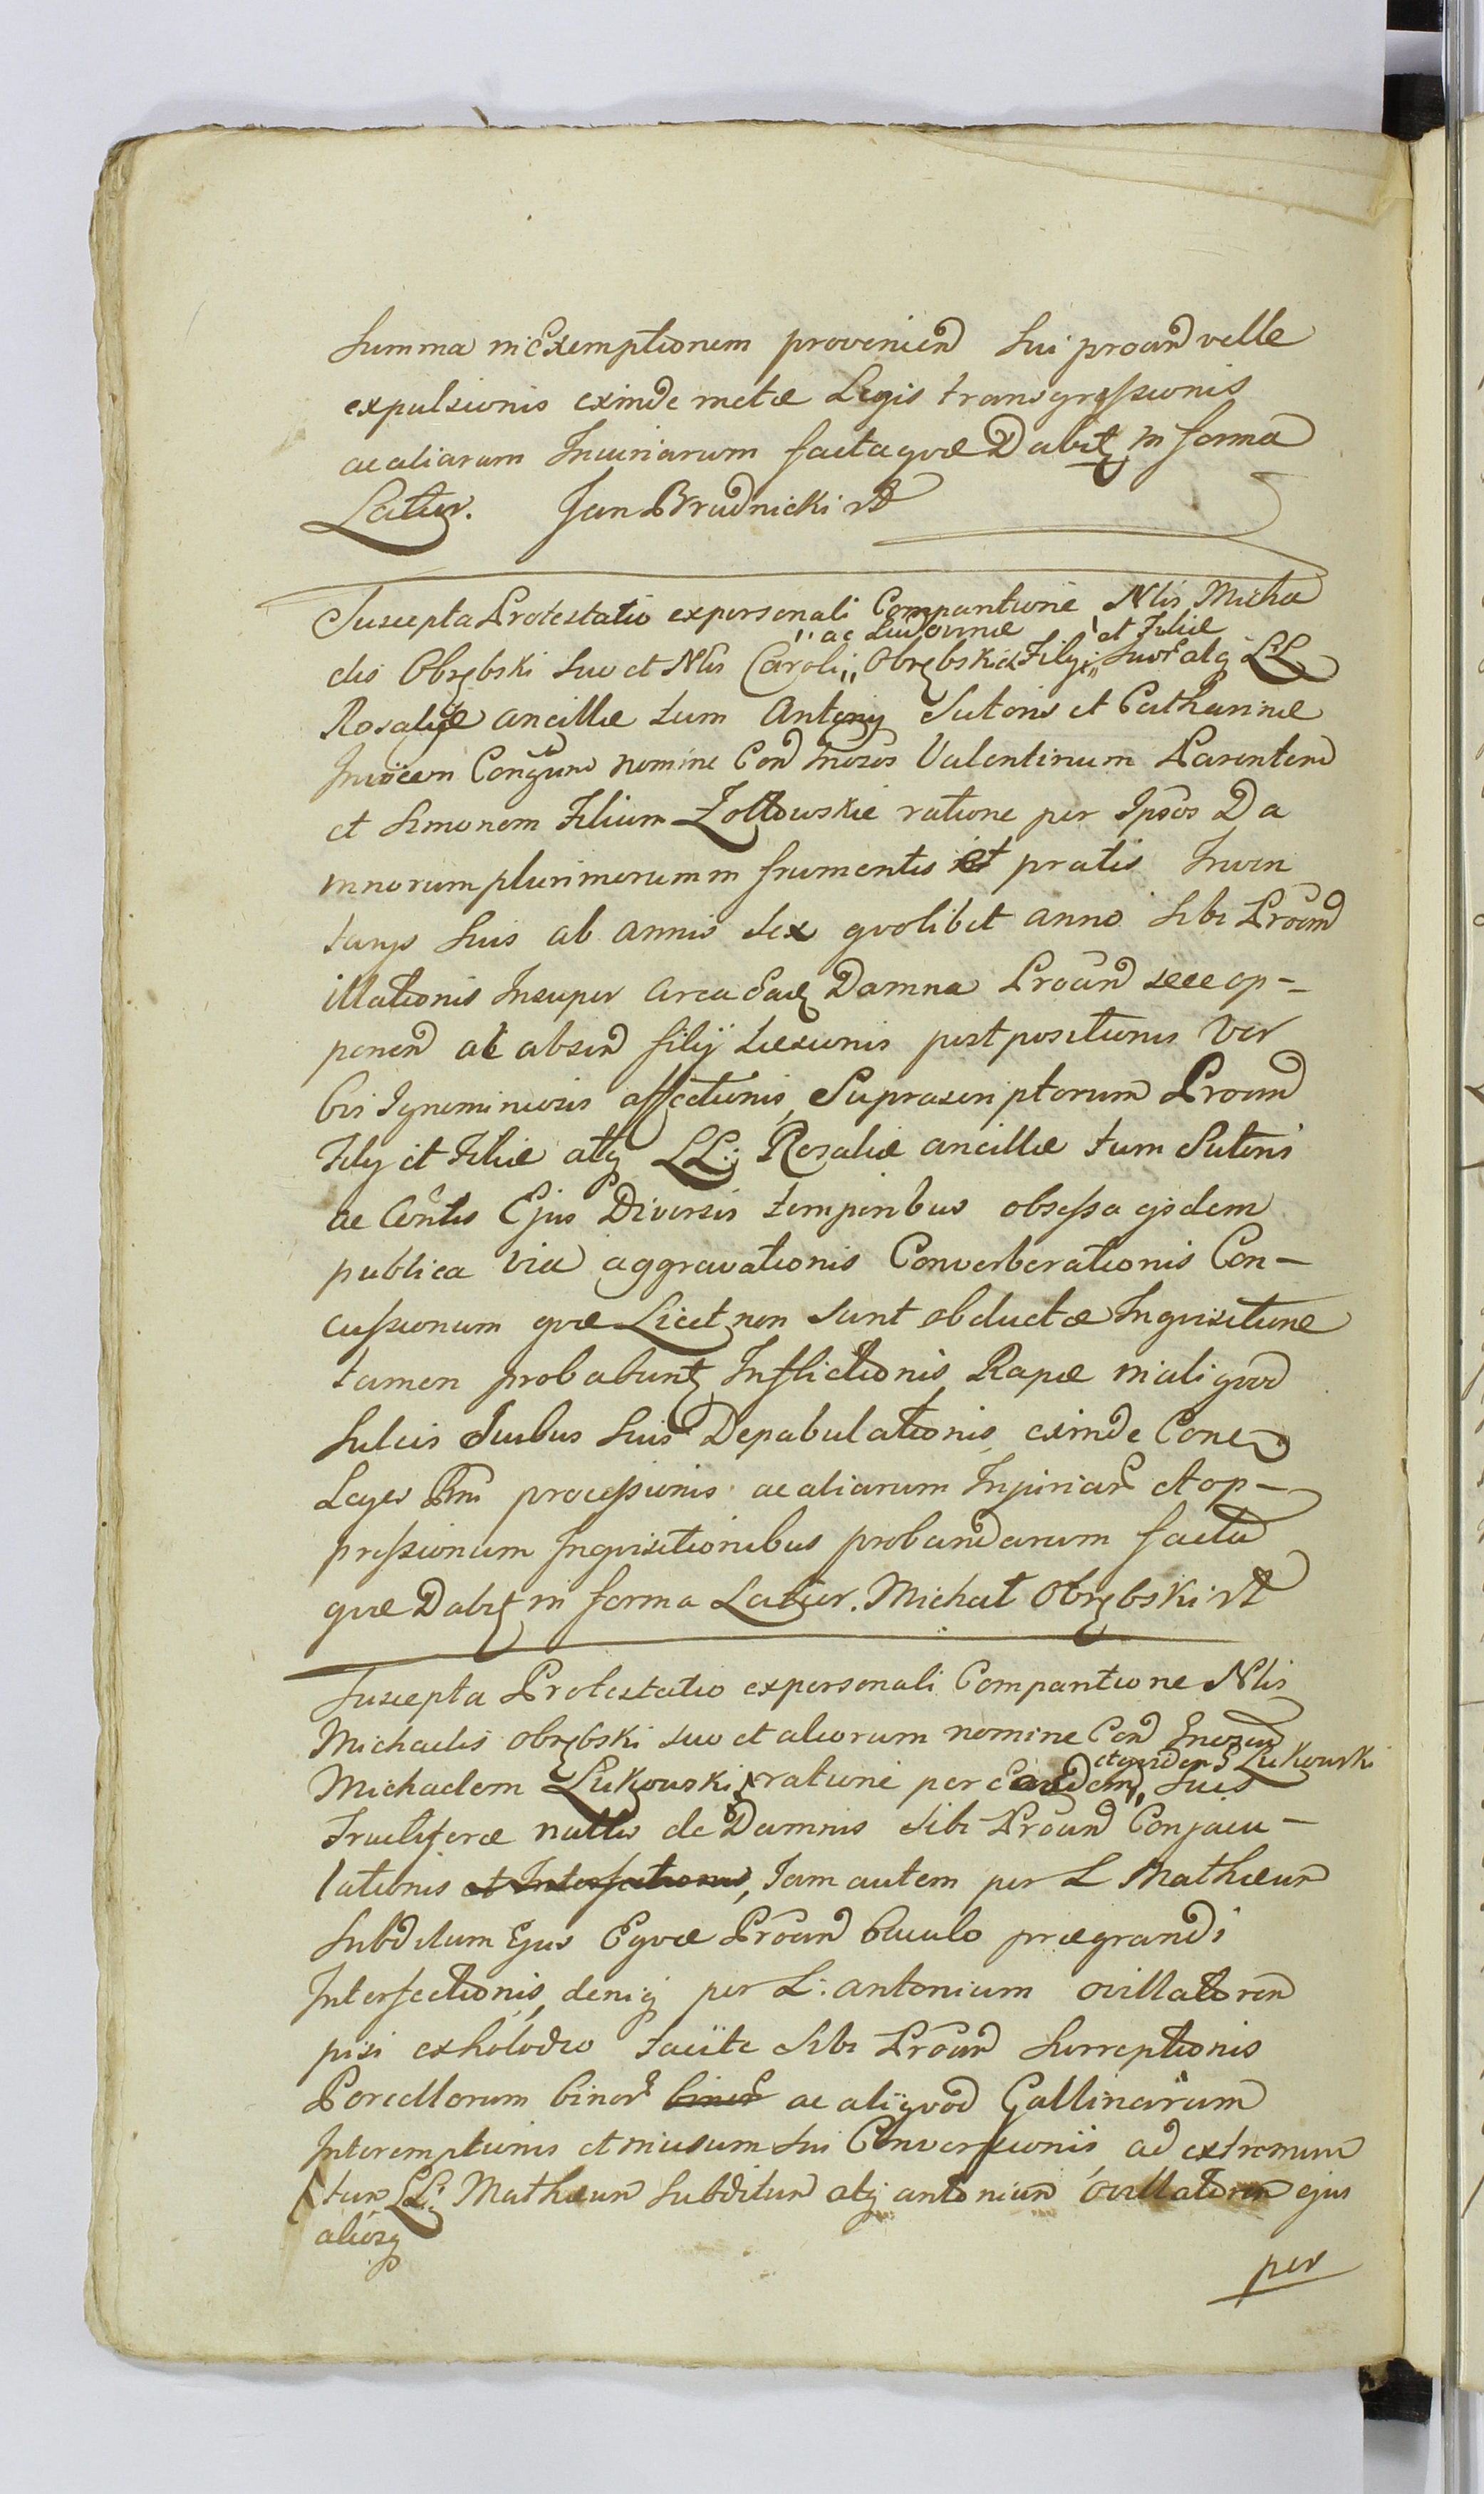 Summa in Exemptionem provenien Sui proan velle
expulsionis exinde metæ Legis transgressionis
ac aliarum Iniuriarum facta quæ Dabit in forma
Latior. Jan Brudnicki
Suscepta Protestatio ex personali Comparitione Nlis Micha
elis Obrębski suo et Nlis Caroli ,, ac Ludovinæ ,, Obrębskich Filij ,, et Filiæ ,, Suor atq LL
Rosaliæ ancillæ tum Antonij Sutoris et Catharinæ
Invicem Coniugum nomine Con Gnosos Valentinum Parentem
et Simonem Filium Zołtowskie ratione per Ipsos Da
mnorum plurimorum in frumentis et pratis Inven
tarys Suis ab annis sex quolibet anno sibi Proan
illationis Insuper circa Eadem Damna Proan seee op-
ponen ac absen filij Læsionis post positionis Ver
bis Ignominiosis affectionis, Suprascriptorum Proan
Filij et Filiæ atq LL: Rosaliæ ancillæ tum Sutoris
ac Contis Ejus Diversis temporibus obsessa eisdem
publica via aggravationis Converberationis Con-
cussionum quæ Licet non sunt obductæ Inquisitione
tamen probabunt Inflictionis Rapæ in aliquod
Sulcis Suibus Suis Depabulationis exinde Con
Leges processionis ac aliarum Injuriar et op-
pressionum Inquisitionibus probandarum facta
quæ Dabit in forma Latior. Michał Obrębski
Suscepta Protestatio ex personali Comparitione Nlis
Michaelis Obrębski suo et aliorum nomine Con Gnosum
Michaelem Łukowski ratione per Eundem ,, et equidem Łukowski ,, Suis
Fructiferæ nullis de Damnis Sibi Proan Conjacu-
lationis et Interfectionis, Jam autem per L Mathæum
Subditum Ejus Equæ Proan baculo prægrandi
Interfectionis, deniq per L: antonium ovillatorem
pisi ex holodio tacite Sibi Proan Surreptionis
Porcellorum binor binor ac aliquod Gallinarum
Interemptionis et in usum sui Conversionis, ad extremum
tum LL: Mathæum Subditum atq antonium Ovillatorem ejus
aliosq
per